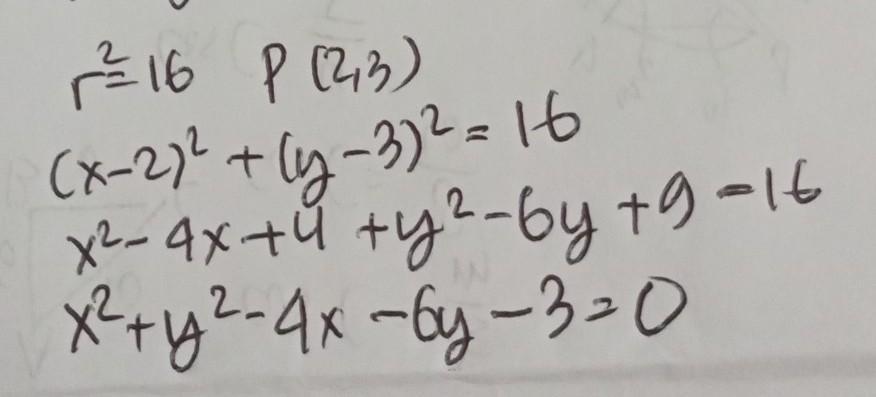 r²=16 P(2,3)
(x-2)² + (y-3)² = 16
x²-4x+4+y²-6y+9=16
x²+y²-4x-6y-3=0